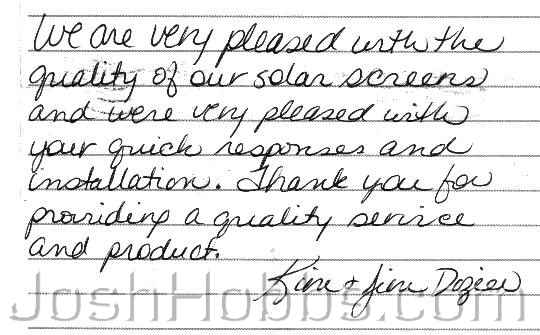 We are very pleased with the
quality of our solar screens
and were very pleased with
your quick responses and
installation. Thank you for
providing a quality service
and product.
Kim + Jim Dozier
JoshHobbs.com